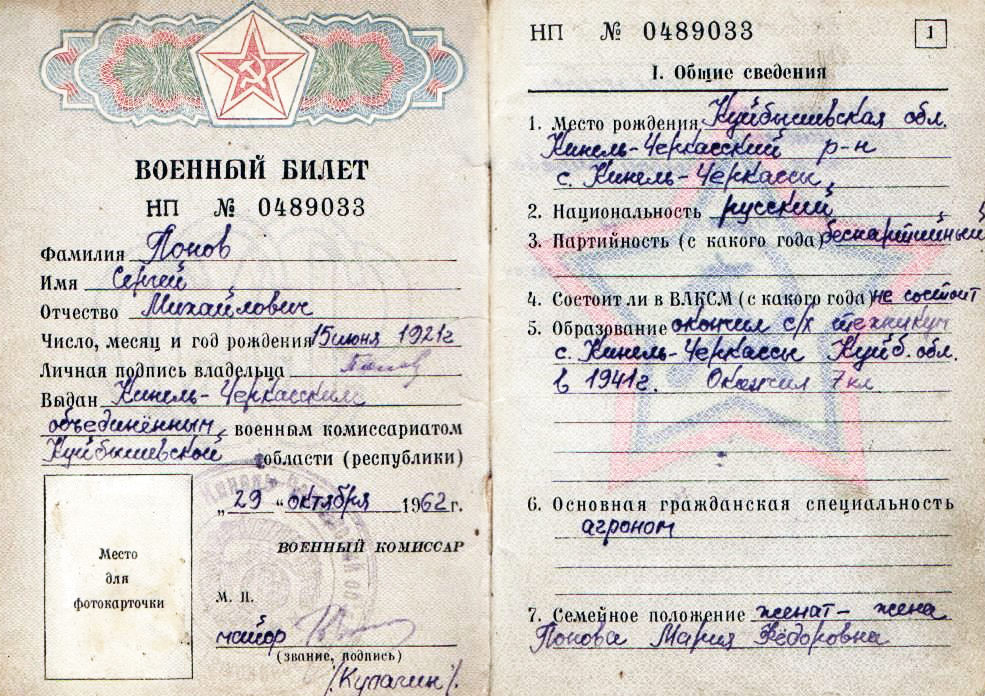 ВОЕННЫЙ БИЛЕТ
НП № 0489033
Фамилия Попов
Имя Сергей
Отчество Михайлович
Число, месяц и год рождения 15 июня 1921г
Личная подпись владельца Попов
Выдан Кинель-Черкасским
объединённым военным комиссариатом
Куйбышевской области (республики)
„29“ октября 1962 г.
ВОЕННЫЙ КОМИССАР
Место
для
фотокарточки
М. П.
майор
(звание, подпись)
/Кулагин/.
НП № 0489033
1
I. Общие сведения
1. Место рождения Куйбышевская обл.
Кинель-Черкасский р-н
с. Кинель-Черкассы
2. Национальность русский
3. Партийность (с какого года) беспартийный
4. Состоит ли в ВЛКСМ (с какого года) не состоит
5. Образование окончил с/х техникум
с. Кинель-Черкассы Куйб. обл.
в 1941г. Окончил 7 кл
6. Основная гражданская специальность
агроном
7. Семейное положение женат - жена
Попова Мария Фёдоровна